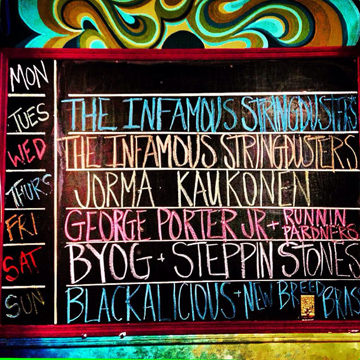 MON
TUES THE INFAMOUS STRINGDUSTERS
WED THE INFAMOUS STRINGDUSTERS
THURS JORMA KAUKONEN
FRI GEORGE PORTER JR + RUNNIN PARDNERS
SAT BYOG + STEPPIN STONES
SUN BLACKALICIOUS + NEW BREED BRASS